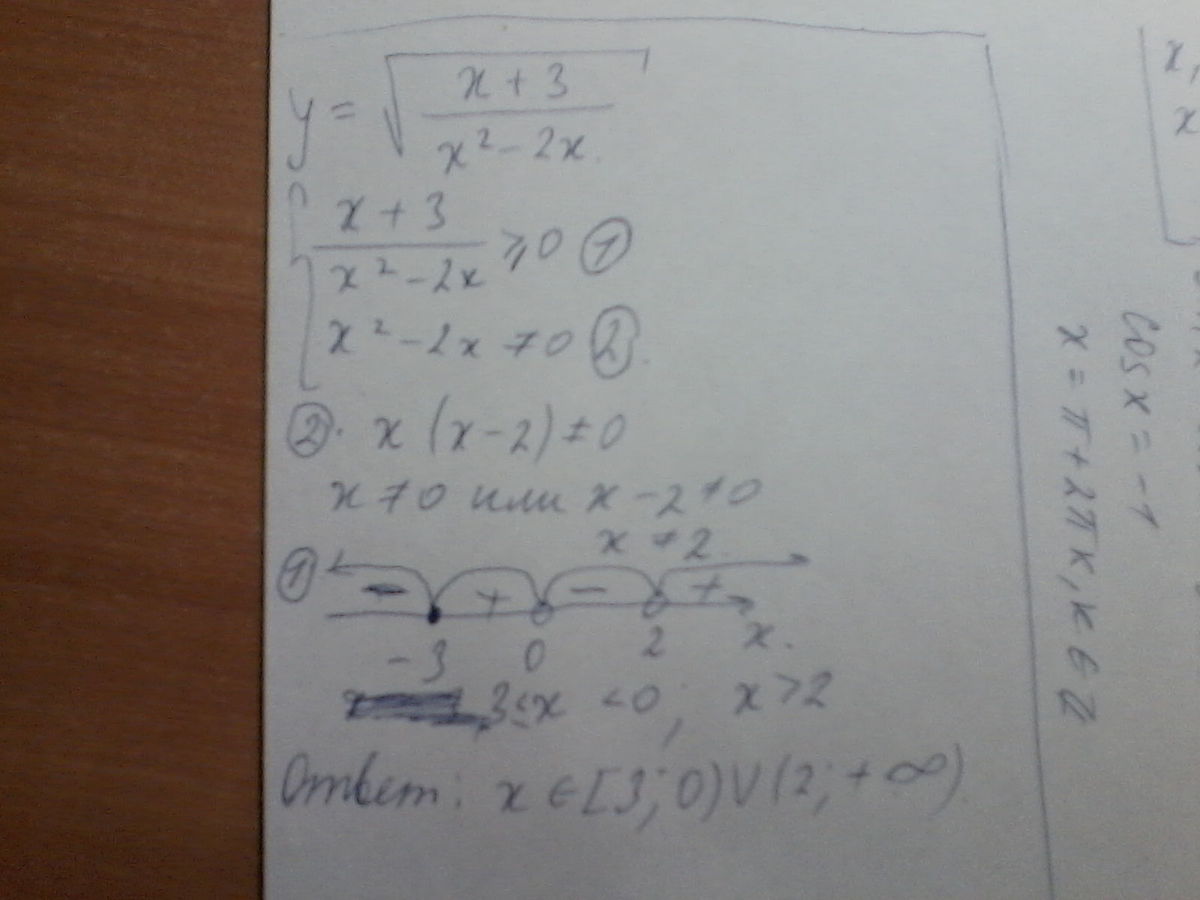 y = √((x + 3)/(x² - 2x))
(x + 3)/(x² - 2x) ≥ 0 ①
x² - 2x ≠ 0 ②
②. x (x - 2) ≠ 0
x ≠ 0 или x - 2 ≠ 0
x ≠ 2
① - + - +
-3 0 2 x.
3 ≤ x < 0; x > 2
Ответ: x ∈ [3; 0) ∪ (2; + ∞)
cos x = -1
x = π + 2πk, k ∈ Z